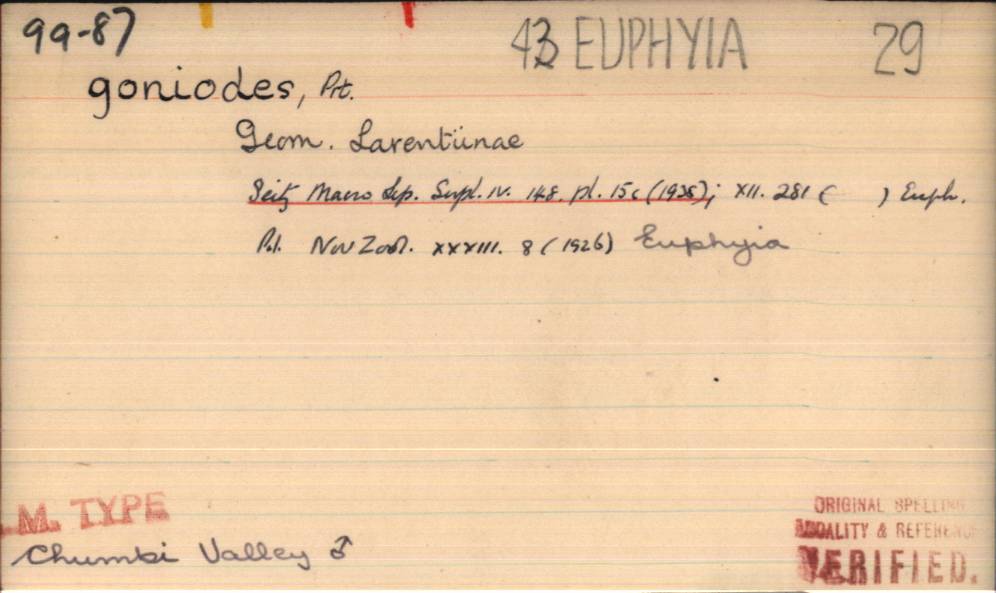 99-87
43 EUPHYIA 29
goniodes, Prt.
Geom. Larentiinae
Seitz Macro Lep. Supl. IV. 148. pl. 15c (1938); XII. 281 ( ) Euph.
Nov Zool. XXXIII. 8 (1926) Euphyia
.M. TYPE
Chumbi Valley ♂
ORIGINAL SPELLING
LOCALITY & REFERENCE
VERIFIED.